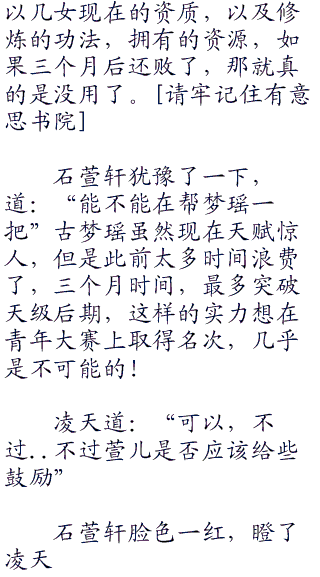 以几女现在的资质，以及修
炼的功法，拥有的资源，如
果三个月后还败了，那就真
的是没用了。[请牢记住有意
思书院]
石萱轩犹豫了一下，
道：“能不能在帮梦瑶一
把”古梦瑶虽然现在天赋惊
人，但是此前太多时间浪费
了，三个月时间，最多突破
天级后期，这样的实力想在
青年大赛上取得名次，几乎
是不可能的！
凌天道：“可以，不
过..不过萱儿是否应该给些
鼓励”
石萱轩脸色一红，瞪了
凌天